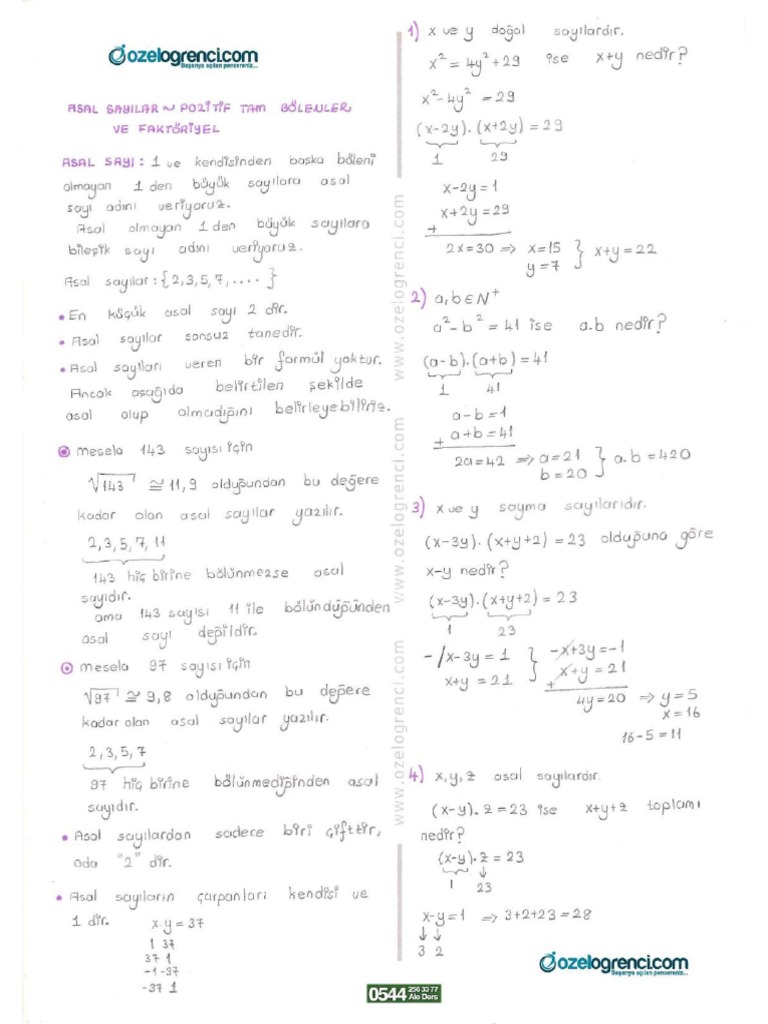 ozelogrenci.com
Başarıya açılan pencereniz...
ASAL SAYILAR ~ POZİTİF TAM BÖLENLER
VE FAKTÖRİYEL
ASAL SAYI : 1 ve kendisinden başka böleni
olmayan 1 den büyük sayılara asal
sayı adını veriyoruz.
Asal olmayan 1 den büyük sayılara
bileşik sayı adını veriyoruz.
Asal sayılar : {2,3,5,7,....}
• En küçük asal sayı 2 dir.
• Asal sayılar sonsuz tanedir.
• Asal sayıları veren bir formül yoktur.
Ancak aşağıda belirtilen şekilde
asal olup olmadığını belirleyebiliriz.
Mesela 143 sayısı için
√143 ≅ 11,9 olduğundan bu değere
kadar olan asal sayılar yazılır.
2,3,5,7,11
143 hiç birine bölünmezse asal
sayıdır.
ama 143 sayısı 11 ile bölündüğünden
asal sayı değildir.
Mesela 97 sayısı için
√97 ≅ 9,8 olduğundan bu değere
kadar olan asal sayılar yazılır.
2,3,5,7
97 hiç birine bölünmediğinden asal
sayıdır.
• Asal sayılardan sadece biri çifttir,
oda "2" dir.
• Asal sayıların çarpanları kendisi ve
1 dir. x.y = 37
1 37
37 1
-1 -37
-37 1
1) x ve y doğal sayılardır.
x² = 4y² + 29 ise x+y nedir?
x² - 4y² = 29
(x-2y).(x+2y) = 29
1 29
x-2y = 1
x+2y = 29
+
2x = 30 ⇒ x = 15 } x+y = 22
y = 7
2) a,b ∈ N⁺
a² - b² = 41 ise a.b nedir?
(a-b).(a+b) = 41
1 41
a-b = 1
+ a+b = 41
2a = 42 ⇒ a = 21 } a.b = 420
b = 20
3) x ve y sayma sayılarıdır.
(x-3y).(x+y+2) = 23 olduğuna göre
x-y nedir?
(x-3y).(x+y+2) = 23
1 23
-/x-3y = 1 } -x+3y = -1
x+y = 21 + x+y = 21
4y = 20 ⇒ y = 5
x = 16
16-5 = 11
4) x,y,z asal sayılardır.
(x-y).z = 23 ise x+y+z toplamı
nedir?
(x-y).z = 23
1 ↓
23
x-y = 1 ⇒ 3+2+23 = 28
↓ ↓
3 2
www.ozelogrenci.com
www.ozelogrenci.com
www.ozelogrenci.com
0544 256 33 77
Alo Ders
ozelogrenci.com
Başarıya açılan pencereniz...